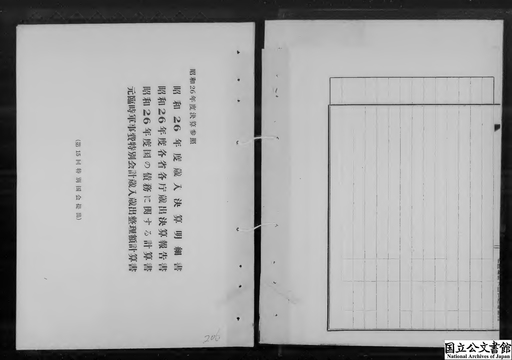 昭和26年度決算参照
昭和26年度歳入決算明細書
昭和26年度各省各庁歳出決算報告書
昭和26年度国の債務に関する計算書
元臨時軍事費特別会計歳入歳出整理額計算書
(第15回特別国会提出)
国立公文書館
National Archives of Japan